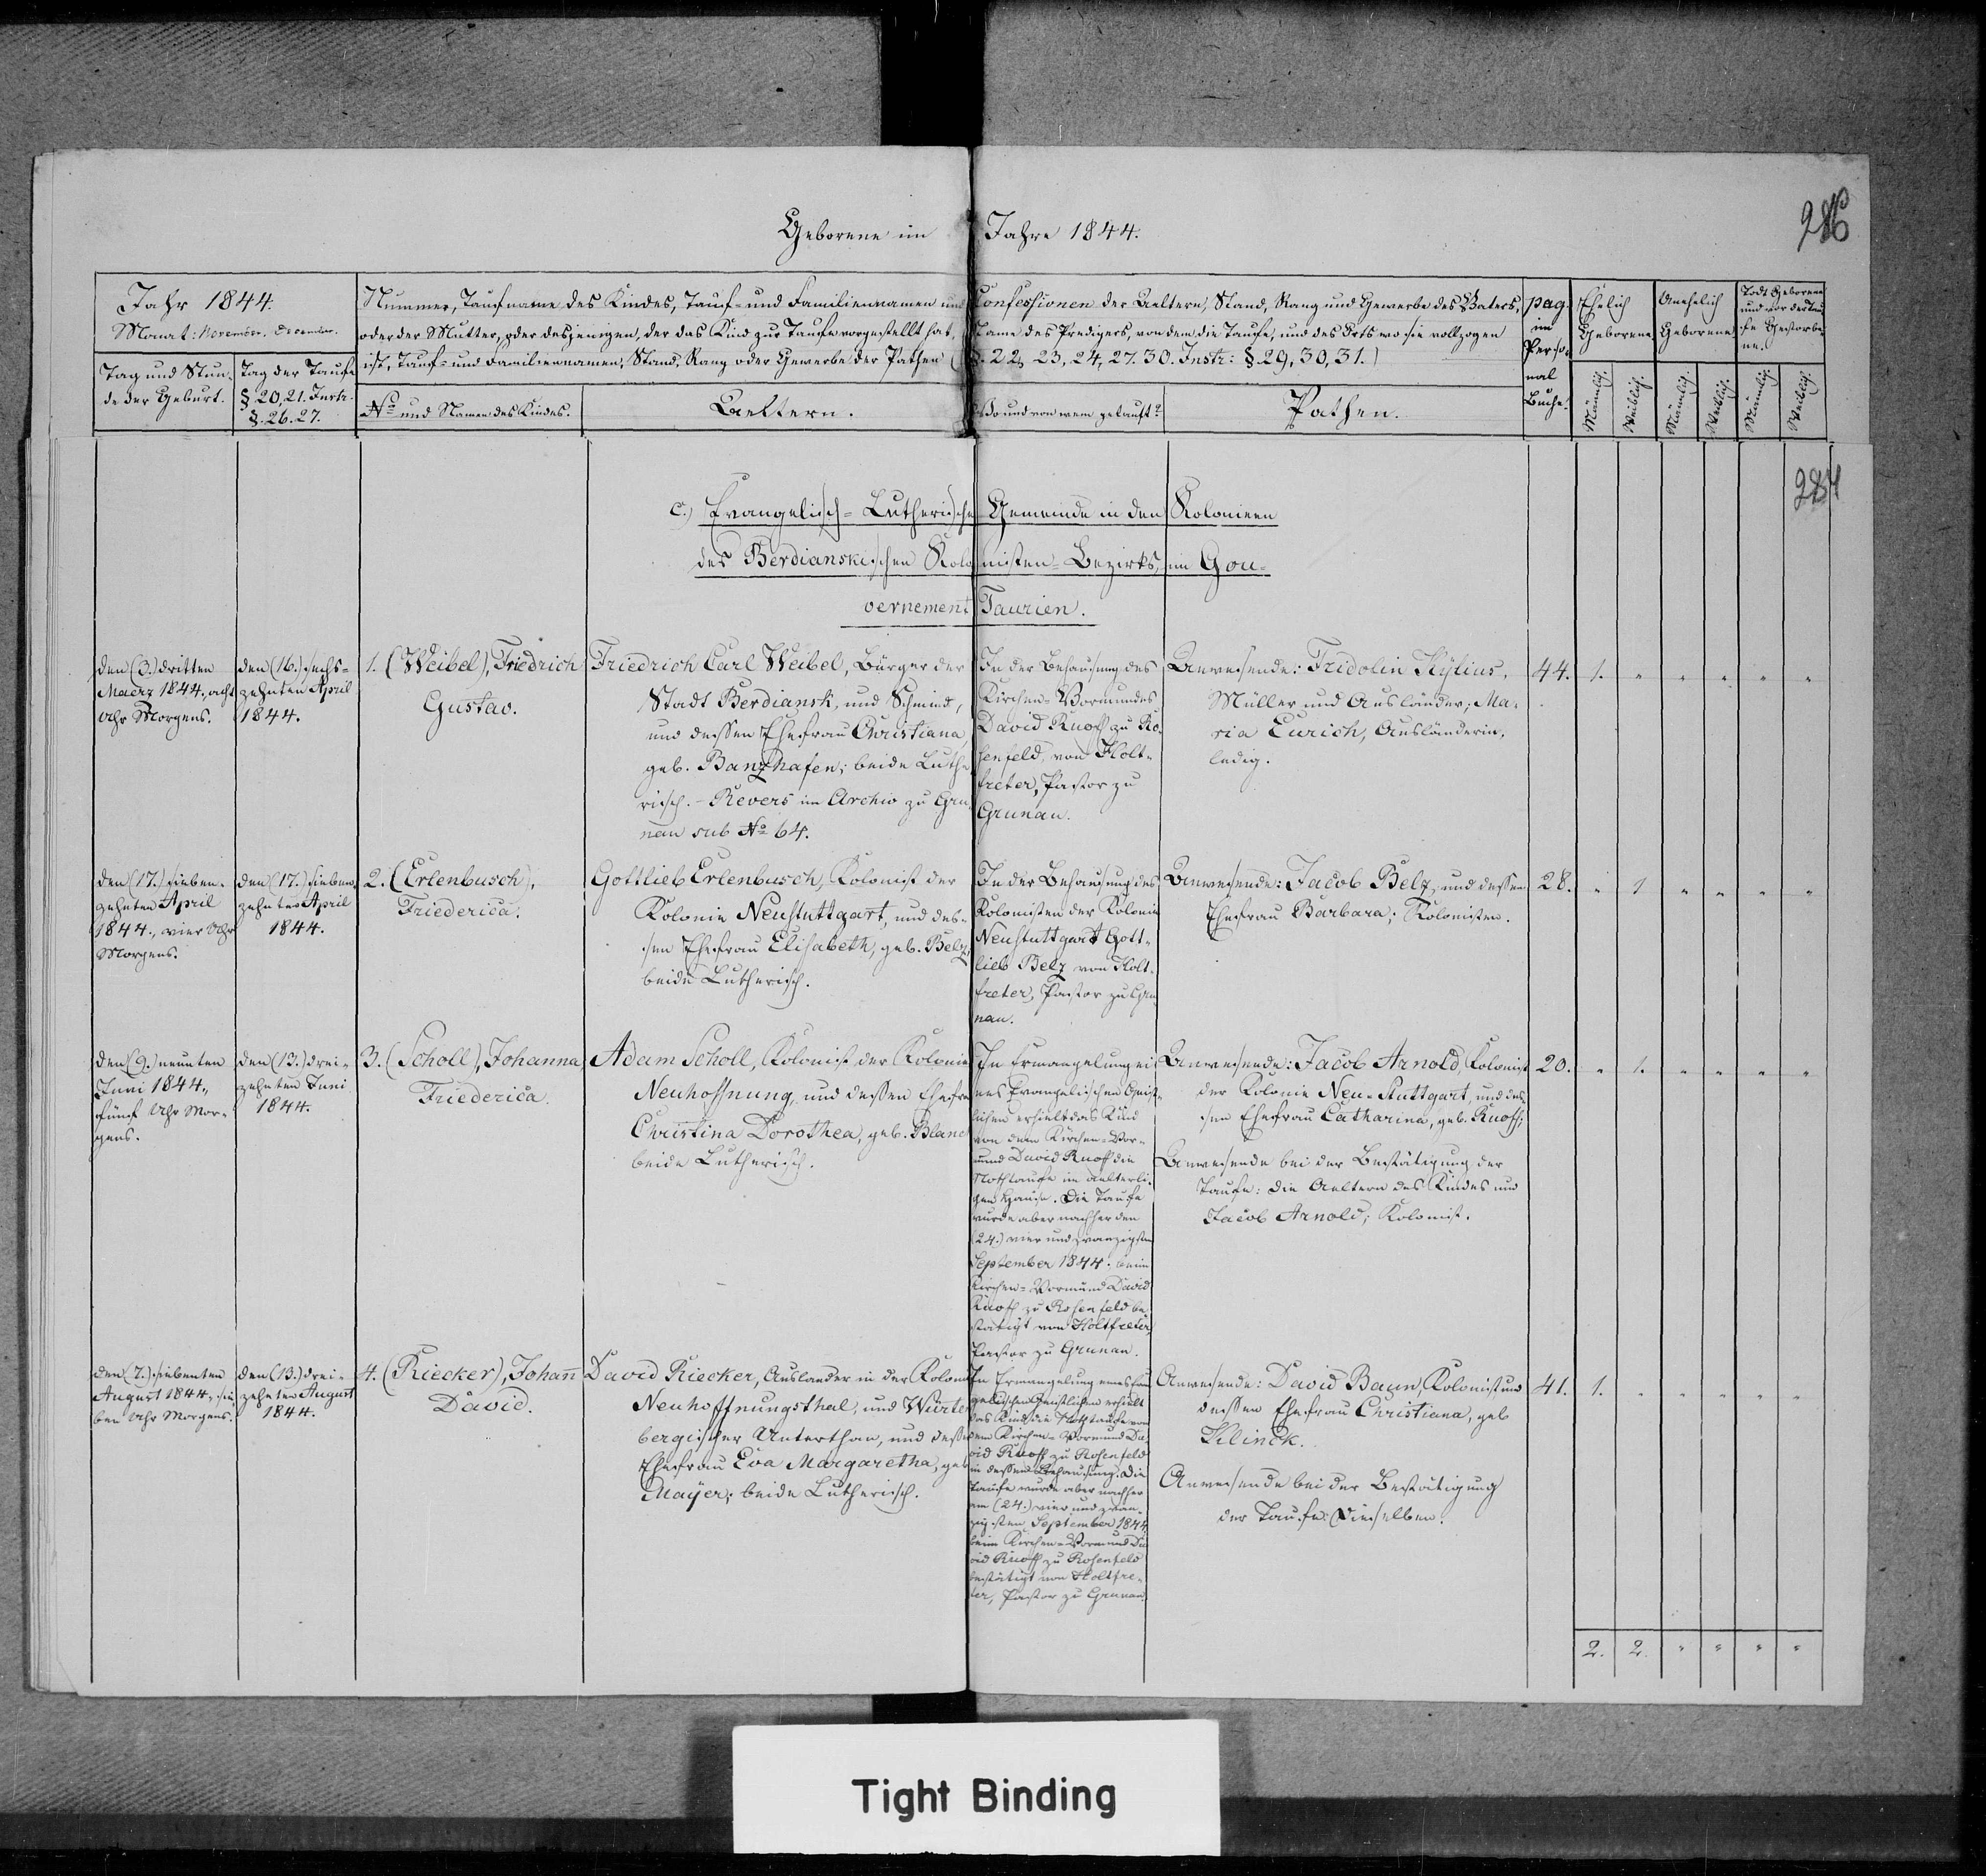 Geborene im Jahre 1844.
286
Jahr 1844.
Monat: November. December.
Tag und Stun-
de der Geburt.
Tag der Taufe
§ 20, 21. Instr.
§. 26. 27.
Nummer, Taufname des Kindes, Tauf- und Familiennamen und Confessionen der Aeltern, Stand, Rang und Gewerbe des Vaters,
oder der Mutter, oder desjenigen, der das Kind zur Taufe vorgestellt hat, Name des Predigers, von dem die Taufe, und des Orts wo sie vollzogen
ist, Tauf- und Familiennamen, Stand, Rang oder Gewerbe der Pathen (§. 22, 23, 24, 27. 30. Instr: §. 29, 30, 31.)
No und Namen des Kindes.
Aeltern.
Wo und von wem getauft?
Pathen.
pag.
im
Perso-
nal
Buche.
Ehelich
Geborene
Unehelich
Geborene
Todt Geborene
und vor der Tau-
fe Gestorbe-
ne.
Männlich.
Weiblich.
Männlich.
Weiblich.
Männlich.
Weiblich.
284
c.) Evangelisch-Lutherische Gemeinde in den Kolonieen
des Berdianskischen Kolonisten-Bezirks, im Gou-
vernement Taurien.
den (3.) dritten
Maerz 1844, acht
Uhr Morgens.
den (16.) sechs-
zehnten April
1844.
1. (Weibel), Friedrich
Gustav.
Friedrich Carl Weibel, Bürger der
Stadt Berdiansk, und Schmied,
und dessen Ehefrau Christiana,
geb. Banzhafen; beide Luthe-
risch. - Revers im Archiv zu Gru-
nau sub No 64.
In der Behausung des
Kirchen-Vormundes
David Knoff zu Ro-
senfeld, von Holt-
freter, Pastor zu
Grunau.
Anwesende: Fridolin Kylius,
Müller und Ausländer; Ma-
ria Eurich, Ausländerin,
ledig.
44. 1. " " " " "
den (17.) sieben-
zehnten April
1844, vier Uhr
Morgens.
den (17.) sieben-
zehnten April
1844.
2. (Erlenbusch),
Friederica.
Gottlieb Erlenbusch, Kolonist der
Kolonie Neustuttgart, und des-
sen Ehefrau Elisabeth, geb. Belz,
beide Lutherisch.
In der Behausung des
Kolonisten der Kolonie
Neustuttgart Gott-
lieb Belz von Holt-
freter, Pastor zu Gru-
nau.
Anwesende: Jacob Belz, und dessen
Ehefrau Barbara; Kolonisten.
28. " 1 " " " "
den (9.) neunten
Juni 1844,
fünf Uhr Mor-
gens.
den (13.) drei-
zehnten Juni
1844.
3. (Scholl), Johanna
Friederica.
Adam Scholl, Kolonist der Kolonie
Neuhoffnung, und dessen Ehefrau
Christina Dorothea, geb. Blanc
beide Lutherisch.
In Ermangelung ei-
nes Evangelischen Geist-
lichen erhielt das Kind
von dem Kirchen-Vor-
mund David Knoff die
Nothtaufe im aelterli-
chen Hause. Die Taufe
wurde aber nachher den
(24.) vier und zwanzigsten
September 1844. beim
Kirchen-Vormund David
Knoff zu Rosenfeld be-
stätigt von Holtfreter,
Pastor zu Grunau.
Anwesende: Jacob Arnold, Kolonist
der Kolonie Neu-Stuttgart, und des-
sen Ehefrau Catharina, geb. Knoff;
Anwesende bei der Bestätigung der
Taufe: die Aeltern des Kindes und
Jacob Arnold; Kolonist.
20. " 1. " " " "
den (7.) siebenten
August 1844, sie-
ben Uhr Morgens.
den (13.) drei-
zehnten August
1844.
4. (Riecker), Johañ
David.
David Riecker, Auslander in der Kolonie
Neuhoffnungsthal, und Würtem-
bergischer Unterthan, und dessen
Ehefrau Eva Margaretha, geb.
Mayer; beide Lutherisch.
In Ermangelung eines Evan-
gelischen Geistlichen erhielt
das Kind die Nothtaufe von
dem Kirchen-Vormund Da-
vid Knoff zu Rosenfeld
in dessen Behausung. Die
Taufe wurde aber nachher
am (24.) vier und zwan-
zigsten September 1844,
beim Kirchen-Vormund Da-
vid Knoff zu Rosenfeld
bestätigt von Holtfre-
ter, Pastor zu Grunau.
Anwesende: David Baun, Kolonist und
dessen Ehefrau Christiana, geb
Klinck.
Anwesende bei der Bestätigung
der Taufe: Dieselben.
41. 1. " " " " "
2. 2. " " " "
Tight Binding